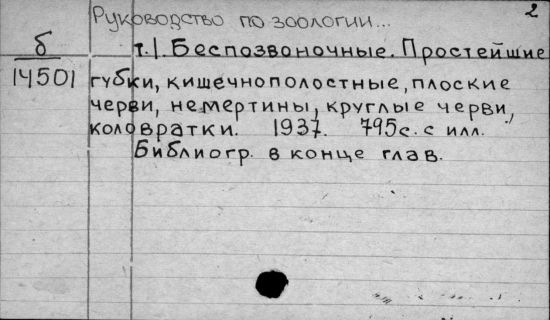 2
Руководство по зоологии...
б
14501
т.1. Беспозвоночные. Простейшие
губки, кишечнополостные, плоские
черви, немертины, круглые черви,
коловратки. 1937. 795с. с илл.
Библиогр. в конце глав.